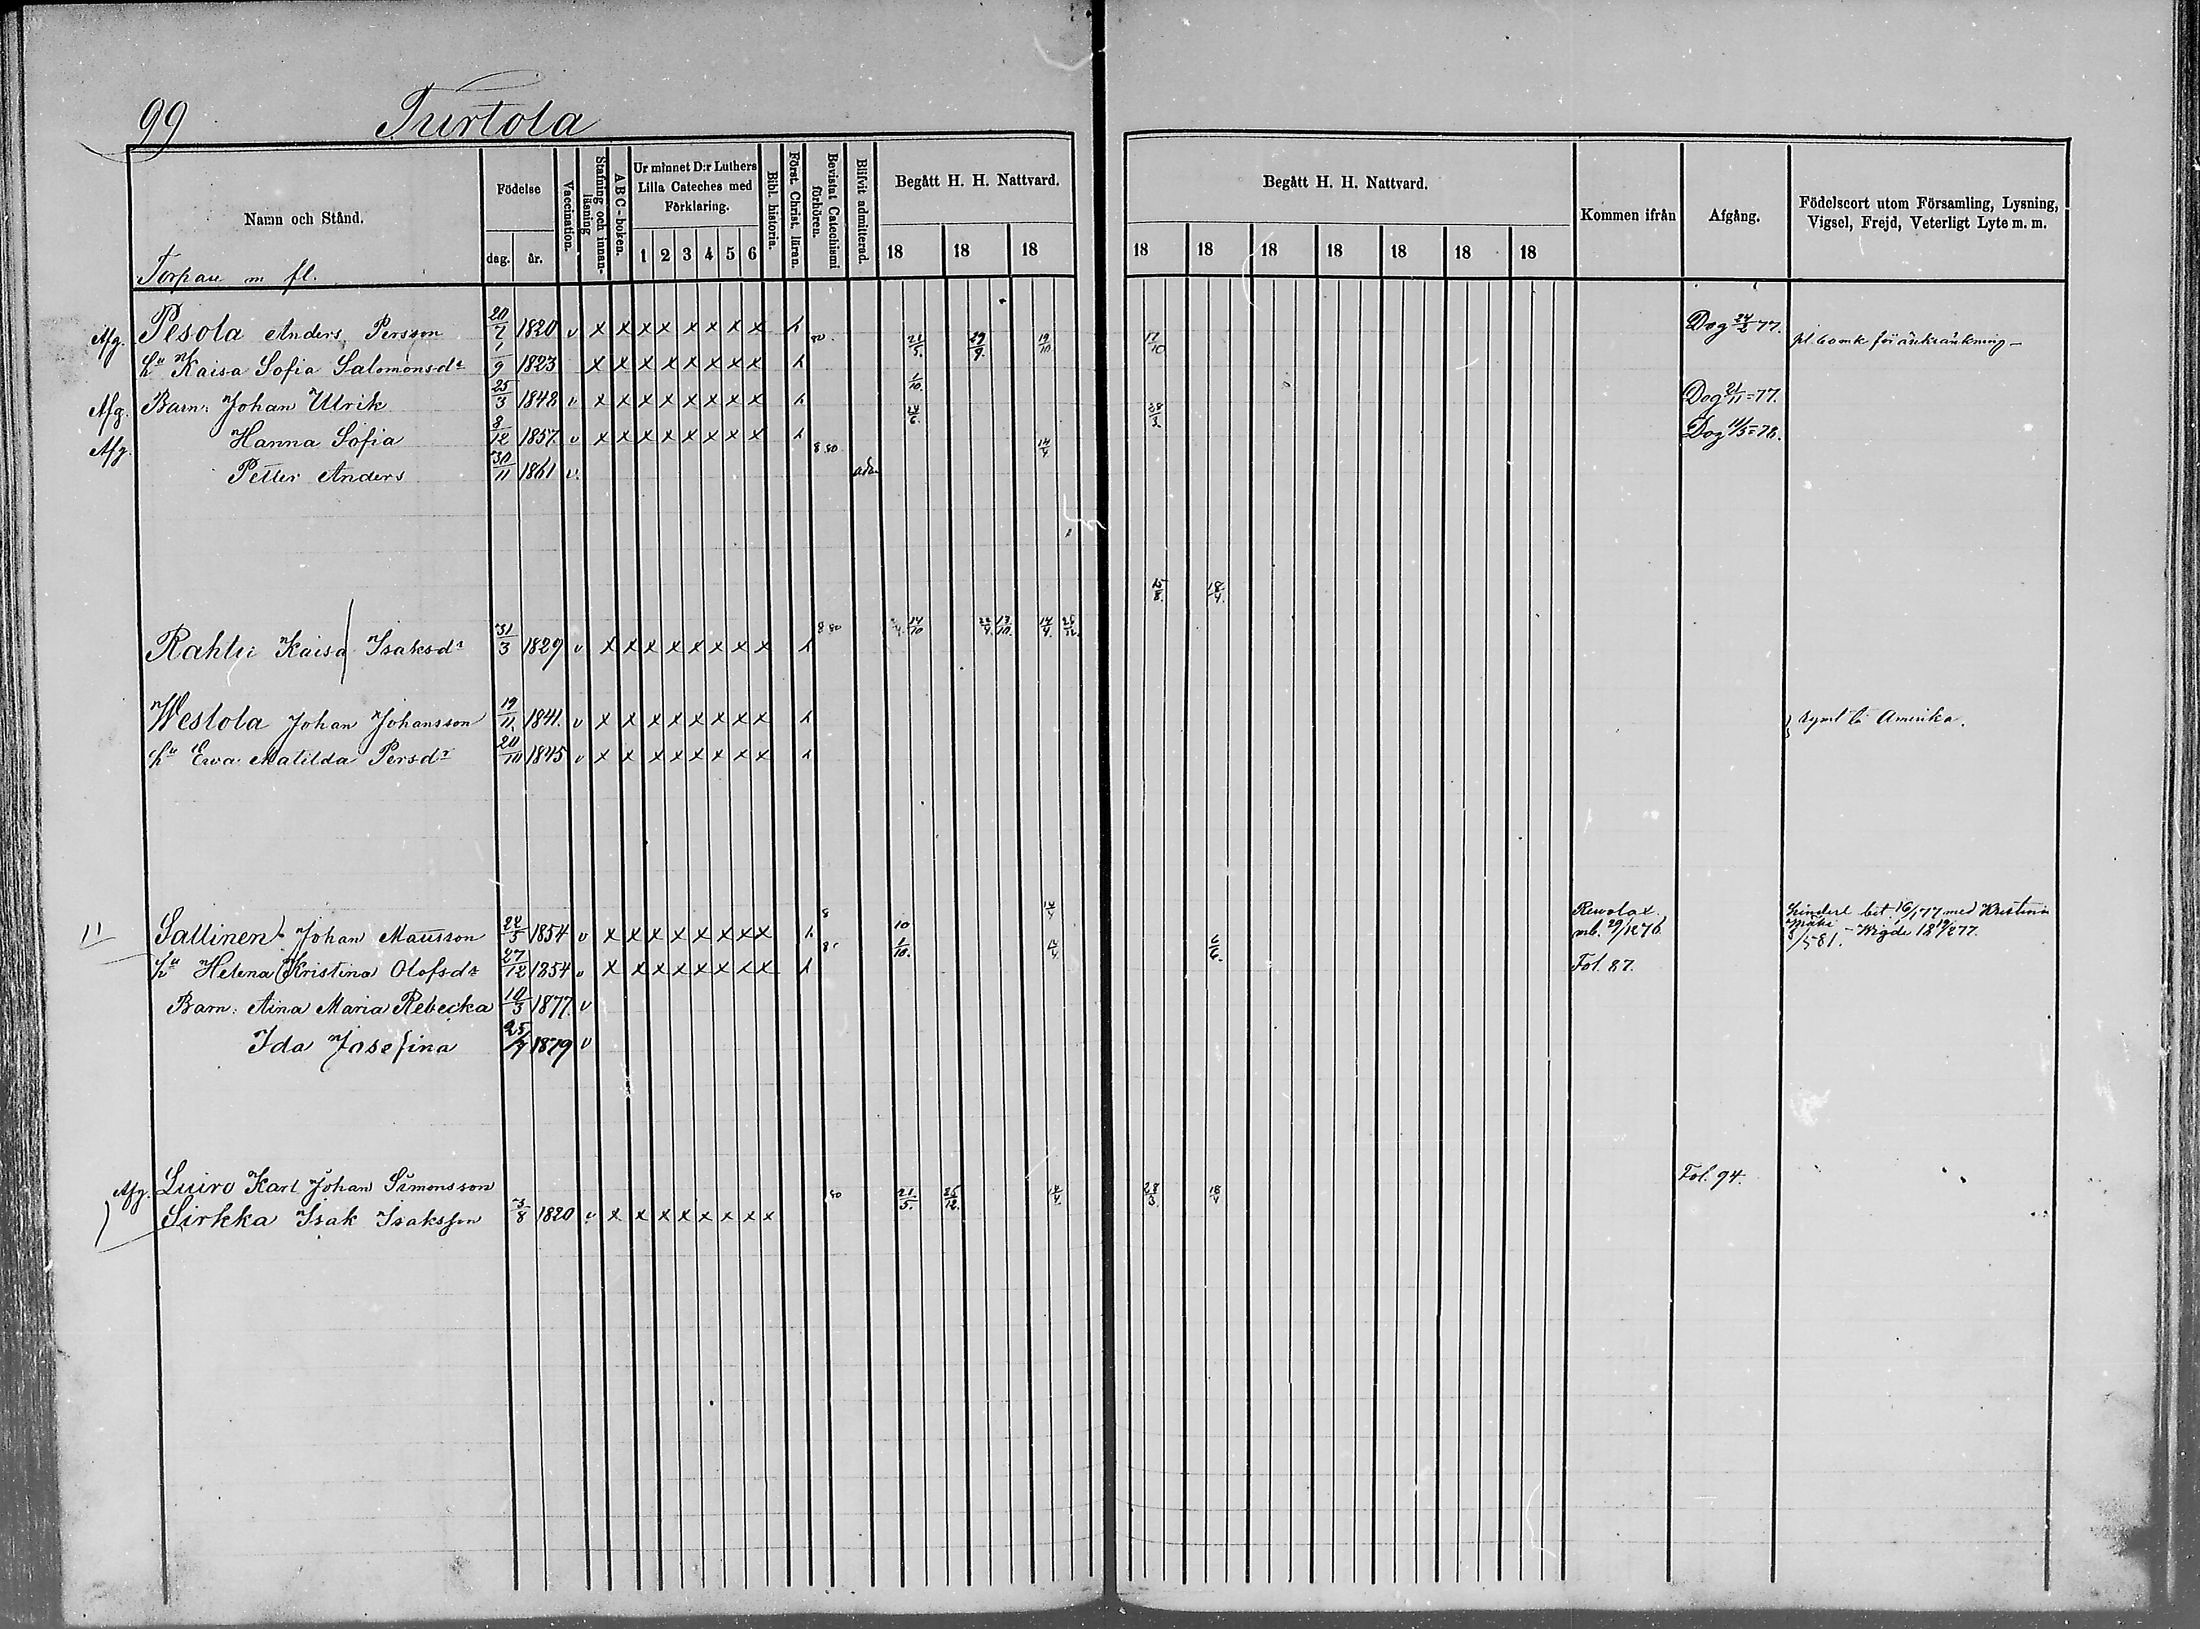 99 Turtola
Namn och Stånd. Födelse dag. år. Vaccination. Stafning och innanläsning A B C-boken. Ur minnet D:r Luthers Lilla Cateches med Förklaring. 1 2 3 4 5 6 Bibl. historia. Först. Christ. läran. Bevistat Catechismi förhören. Blifvit admitterad. Begått H. H. Nattvard. 18 18 18
Begått H. H. Nattvard. 18 18 18 18 18 18 18 Kommen ifrån Afgång. Födelseort utom Församling, Lysning, Vigsel, Frejd, Veterligt Lyte m. m.
Torpau m fl.
Afg. Pesola Anders Persson 20/7 1820 v x x x x x x x x h 80. 21/5. 29/9. 19/10 17/10 Dog 24/2 77. pl. 60 mk för ärekränkning
hu Kaisa Sofia Salomonsdr 1/9 1823 x x x x x x x x h 1/10.
Afg. Barn: Johan Ulrik 25/3 1848 v x x x x x x x x h 24/6. 28/3. Dog 21/11 77.
Afg. Hanna Sofia 8/12 1857 v x x x x x x x x h 8 80 14/4 Dog 11/5 78.
Petter Anders 30/11 1861 v. adm
15/8. 18/4.
Rahtu Kaisa Isaksdr 31/3 1829 v x x x x x x x x h 8 80 14/10 22/4 13/10. 14/4. 25/12.
Westola Johan Johansson 19/11. 1841. v x x x x x x x x h rymt till Amerika.
hu Ewa Matilda Persdr 20/10 1845 v x x x x x x x x h
11 Sallinen Johan Mausson 24/5 1854 v x x x x x x x x h 8 10 14/4 Rewolax nb. 29/12 76. hinderl. bet. 16/1 77 med Kristina Mäki
hu Helena Kristina Olofsdr 27/12 1854 v x x x x x x x x h 8 1/10. 14/4 6/6. Fol. 87. 3/5 81. - Wigde 18 19/2 77.
Barn: Aina Maria Rebecka 10/3 1877. v
Ida Josefina 25/7 1879 v
Afg. Luiro Karl Johan Simonsson Fol. 94.
Sirkka Isak Isaksson 3/8 1820 v x x x x x x x x 80 21/5. 25/12. 14/4 28/3. 18/4